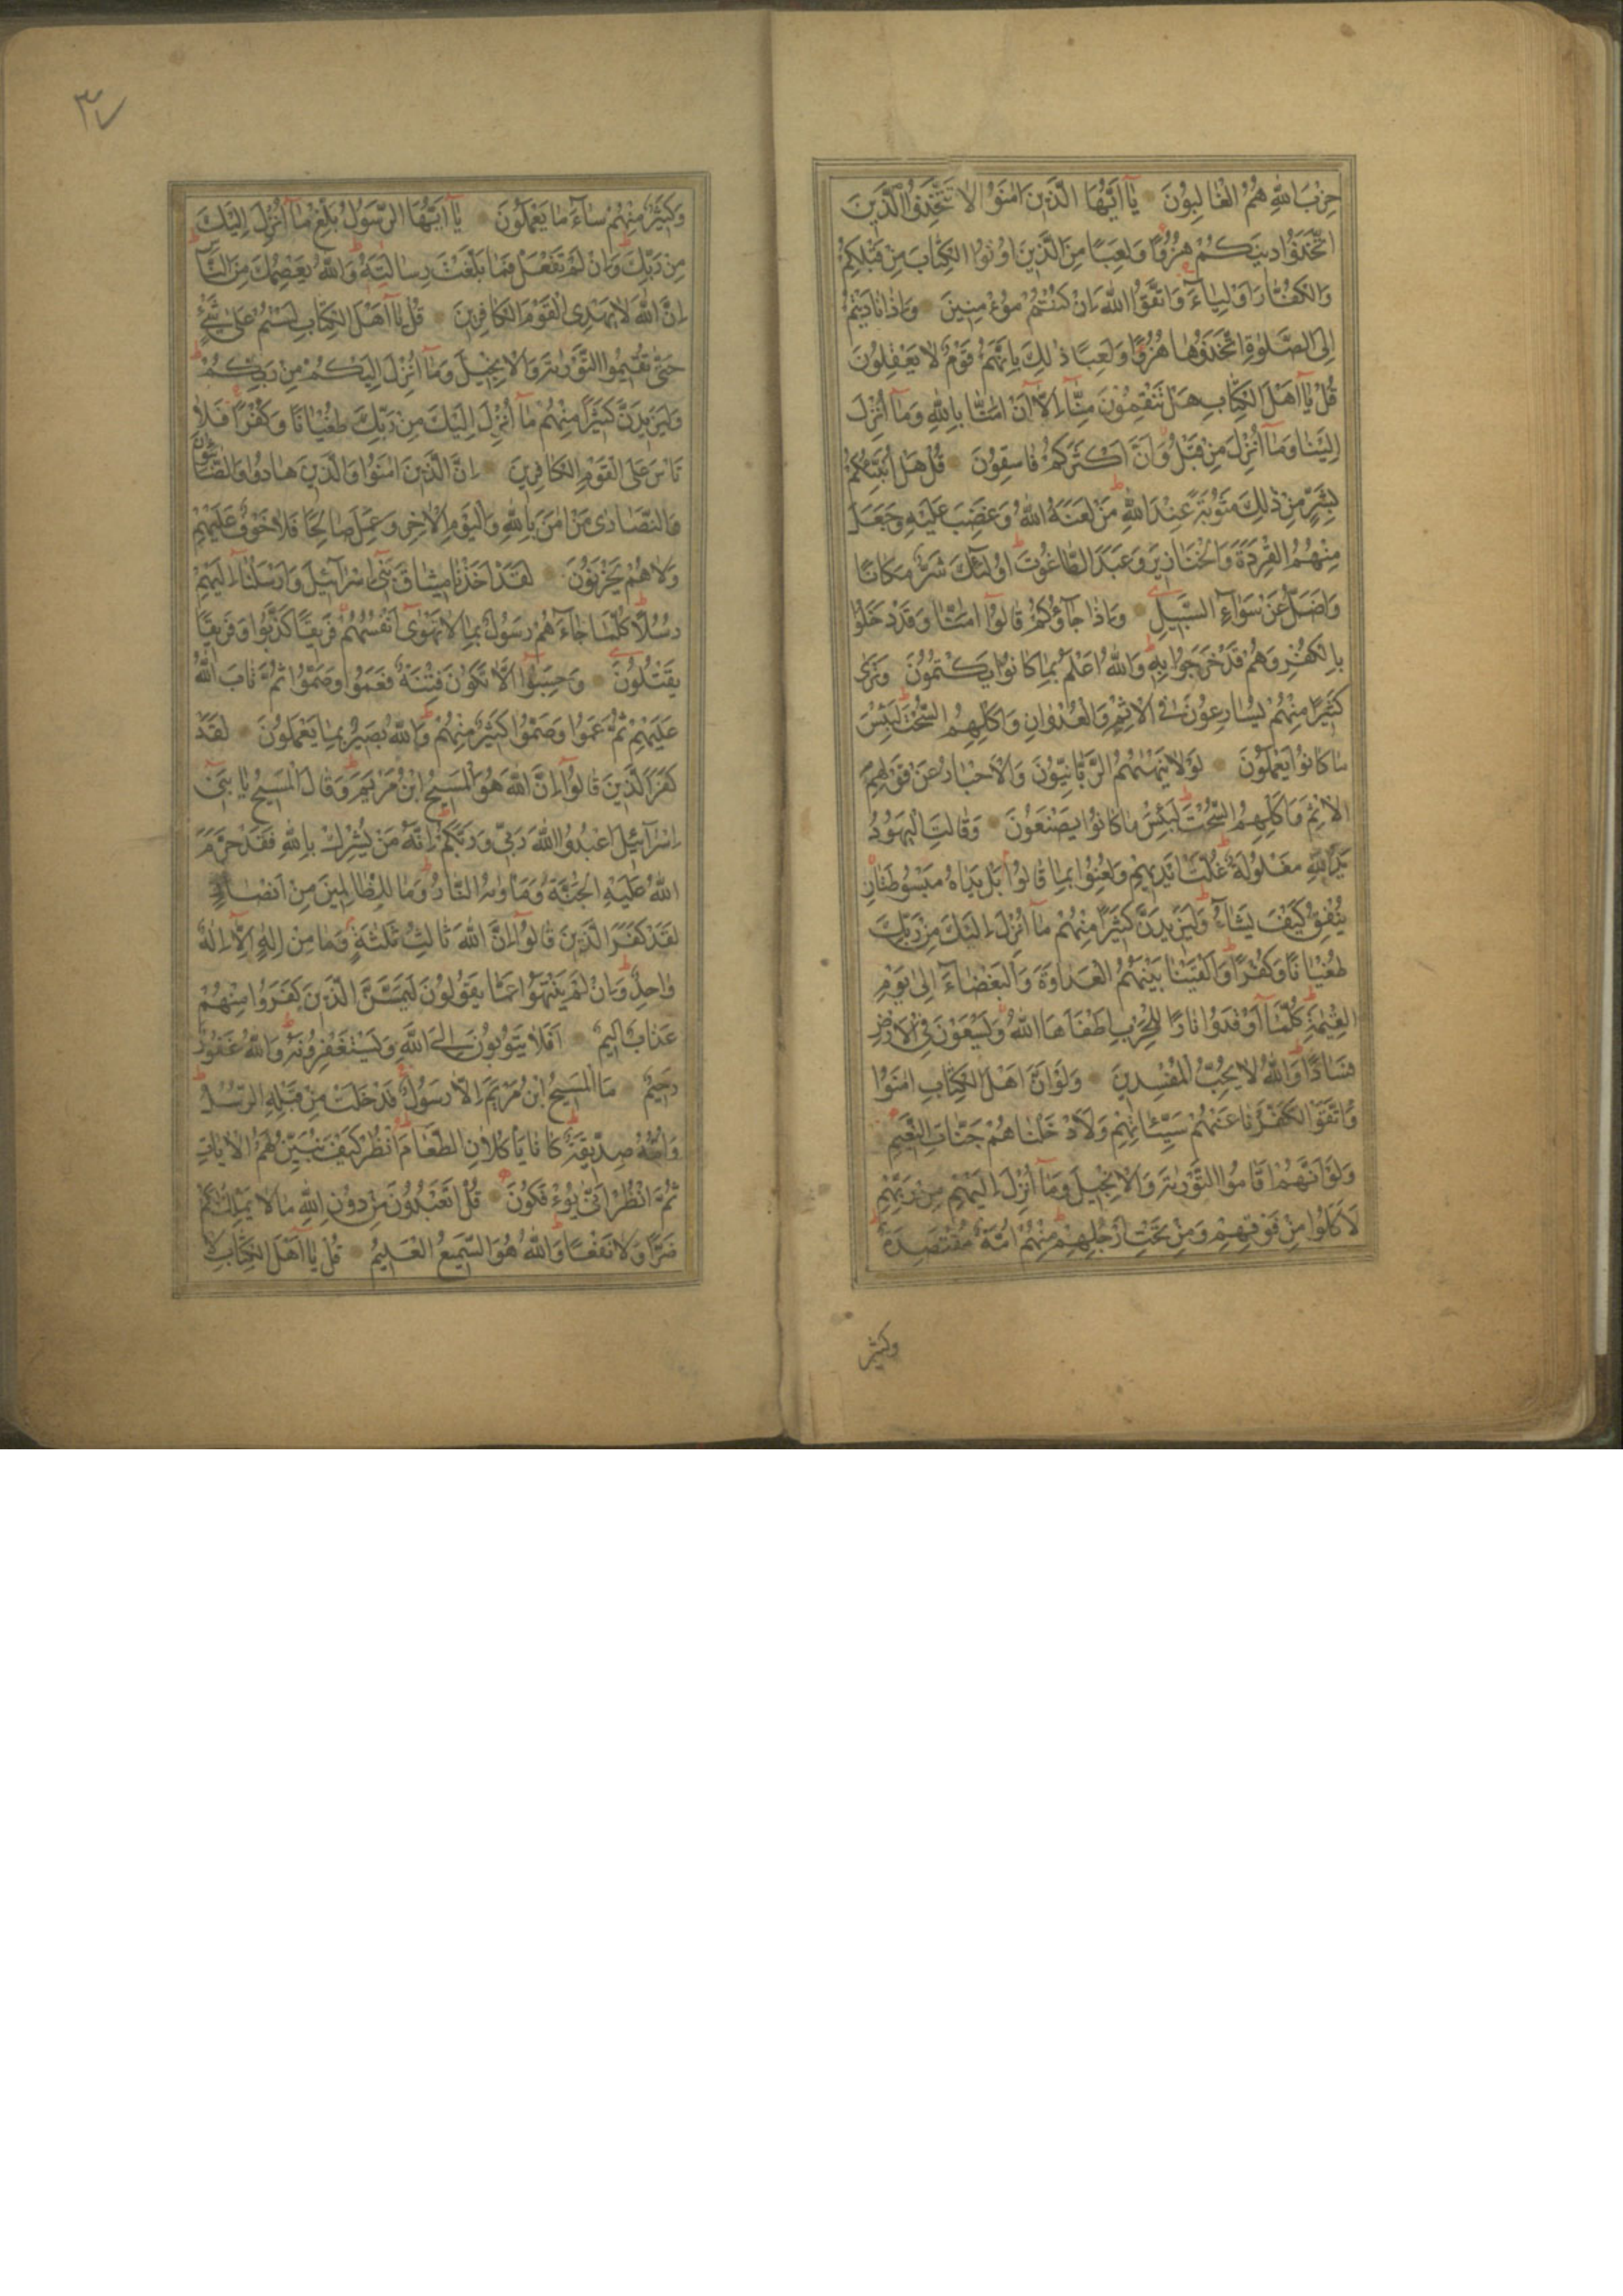 حِزْبَ اللّٰهِ هُمُ الْغَالِبُونَ يَا أَيُّهَا الَّذِينَ اٰمَنُوا لَا تَتَّخِذُوا الَّذِينَ
اتَّخَذُوا دِينَكُمْ هُزُوًا وَلَعِبًا مِنَ الَّذِينَ اُوتُوا الْكِتَابَ مِنْ قَبْلِكُمْ
وَالْكُفَّارَ اَوْلِيَاءَ وَاتَّقُوا اللّٰهَ اِنْ كُنْتُمْ مُؤْمِنِينَ وَاِذَا نَادَيْتُمْ
اِلَى الصَّلٰوةِ اتَّخَذُوهَا هُزُوًا وَلَعِبًا ذٰلِكَ بِاَنَّهُمْ قَوْمٌ لَا يَعْقِلُونَ
قُلْ يَا اَهْلَ الْكِتَابِ هَلْ تَنْقِمُونَ مِنَّا اِلَّا اَنْ اٰمَنَّا بِاللّٰهِ وَمَا اُنْزِلَ
اِلَيْنَا وَمَا اُنْزِلَ مِنْ قَبْلُ وَاَنَّ اَكْثَرَكُمْ فَاسِقُونَ قُلْ هَلْ اُنَبِّئُكُمْ
بِشَرٍّ مِنْ ذٰلِكَ مَثُوبَةً عِنْدَ اللّٰهِ مَنْ لَعَنَهُ اللّٰهُ وَغَضِبَ عَلَيْهِ وَجَعَلَ
مِنْهُمُ الْقِرَدَةَ وَالْخَنَازِيرَ وَعَبَدَ الطَّاغُوتَ اُولٰئِكَ شَرٌّ مَكَانًا
وَاَضَلُّ عَنْ سَوَاءِ السَّبِيلِ وَاِذَا جَاؤُكُمْ قَالُوا اٰمَنَّا وَقَدْ دَخَلُوا
بِالْكُفْرِ وَهُمْ قَدْ خَرَجُوا بِهِ وَاللّٰهُ اَعْلَمُ بِمَا كَانُوا يَكْتُمُونَ وَتَرٰى
كَثِيرًا مِنْهُمْ يُسَارِعُونَ فِي الْاِثْمِ وَالْعُدْوَانِ وَاَكْلِهِمُ السُّحْتَ لَبِئْسَ
مَا كَانُوا يَعْمَلُونَ لَوْلَا يَنْهٰيهُمُ الرَّبَّانِيُّونَ وَالْاَحْبَارُ عَنْ قَوْلِهِمُ
الْاِثْمَ وَاَكْلِهِمُ السُّحْتَ لَبِئْسَ مَا كَانُوا يَصْنَعُونَ وَقَالَتِ الْيَهُودُ
يَدُ اللّٰهِ مَغْلُولَةٌ غُلَّتْ اَيْدِيهِمْ وَلُعِنُوا بِمَا قَالُوا بَلْ يَدَاهُ مَبْسُوطَتَانِ
يُنْفِقُ كَيْفَ يَشَاءُ وَلَيَزِيدَنَّ كَثِيرًا مِنْهُمْ مَا اُنْزِلَ اِلَيْكَ مِنْ رَبِّكَ
طُغْيَانًا وَكُفْرًا وَاَلْقَيْنَا بَيْنَهُمُ الْعَدَاوَةَ وَالْبَغْضَاءَ اِلٰى يَوْمِ
الْقِيٰمَةِ كُلَّمَا اَوْقَدُوا نَارًا لِلْحَرْبِ اَطْفَاَهَا اللّٰهُ وَيَسْعَوْنَ فِي الْاَرْضِ
فَسَادًا وَاللّٰهُ لَا يُحِبُّ الْمُفْسِدِينَ وَلَوْ اَنَّ اَهْلَ الْكِتَابِ اٰمَنُوا
وَاتَّقَوْا لَكَفَّرْنَا عَنْهُمْ سَيِّئَاتِهِمْ وَلَاَدْخَلْنَاهُمْ جَنَّاتِ النَّعِيمِ
وَلَوْ اَنَّهُمْ اَقَامُوا التَّوْرٰيةَ وَالْاِنْجِيلَ وَمَا اُنْزِلَ اِلَيْهِمْ مِنْ رَبِّهِمْ
لَاَكَلُوا مِنْ فَوْقِهِمْ وَمِنْ تَحْتِ اَرْجُلِهِمْ مِنْهُمْ اُمَّةٌ مُقْتَصِدَةٌ
وكثير
٣٧
وَكَثِيرٌ مِنْهُمْ سَاءَ مَا يَعْمَلُونَ يَا اَيُّهَا الرَّسُولُ بَلِّغْ مَا اُنْزِلَ اِلَيْكَ
مِنْ رَبِّكَ وَاِنْ لَمْ تَفْعَلْ فَمَا بَلَّغْتَ رِسَالَتَهُ وَاللّٰهُ يَعْصِمُكَ مِنَ النَّاسِ
اِنَّ اللّٰهَ لَا يَهْدِي الْقَوْمَ الْكَافِرِينَ قُلْ يَا اَهْلَ الْكِتَابِ لَسْتُمْ عَلٰى شَيْءٍ
حَتّٰى تُقِيمُوا التَّوْرٰيةَ وَالْاِنْجِيلَ وَمَا اُنْزِلَ اِلَيْكُمْ مِنْ رَبِّكُمْ
وَلَيَزِيدَنَّ كَثِيرًا مِنْهُمْ مَا اُنْزِلَ اِلَيْكَ مِنْ رَبِّكَ طُغْيَانًا وَكُفْرًا فَلَا
تَاْسَ عَلَى الْقَوْمِ الْكَافِرِينَ اِنَّ الَّذِينَ اٰمَنُوا وَالَّذِينَ هَادُوا وَالصَّابِؤُنَ
وَالنَّصَارٰى مَنْ اٰمَنَ بِاللّٰهِ وَالْيَوْمِ الْاٰخِرِ وَعَمِلَ صَالِحًا فَلَا خَوْفٌ عَلَيْهِمْ
وَلَا هُمْ يَحْزَنُونَ لَقَدْ اَخَذْنَا مِيثَاقَ بَنِي اِسْرَآئِيلَ وَاَرْسَلْنَا اِلَيْهِمْ
رُسُلًا كُلَّمَا جَاءَهُمْ رَسُولٌ بِمَا لَا تَهْوٰى اَنْفُسُهُمْ فَرِيقًا كَذَّبُوا وَفَرِيقًا
يَقْتُلُونَ وَحَسِبُوا اَلَّا تَكُونَ فِتْنَةٌ فَعَمُوا وَصَمُّوا ثُمَّ تَابَ اللّٰهُ
عَلَيْهِمْ ثُمَّ عَمُوا وَصَمُّوا كَثِيرٌ مِنْهُمْ وَاللّٰهُ بَصِيرٌ بِمَا يَعْمَلُونَ لَقَدْ
كَفَرَ الَّذِينَ قَالُوا اِنَّ اللّٰهَ هُوَ الْمَسِيحُ ابْنُ مَرْيَمَ وَقَالَ الْمَسِيحُ يَا بَنِي
اِسْرَآئِيلَ اعْبُدُوا اللّٰهَ رَبِّي وَرَبَّكُمْ اِنَّهُ مَنْ يُشْرِكْ بِاللّٰهِ فَقَدْ حَرَّمَ
اللّٰهُ عَلَيْهِ الْجَنَّةَ وَمَاْوٰيهُ النَّارُ وَمَا لِلظَّالِمِينَ مِنْ اَنْصَارٍ
لَقَدْ كَفَرَ الَّذِينَ قَالُوا اِنَّ اللّٰهَ ثَالِثُ ثَلٰثَةٍ وَمَا مِنْ اِلٰهٍ اِلَّا اِلٰهٌ
وَاحِدٌ وَاِنْ لَمْ يَنْتَهُوا عَمَّا يَقُولُونَ لَيَمَسَّنَّ الَّذِينَ كَفَرُوا مِنْهُمْ
عَذَابٌ اَلِيمٌ اَفَلَا يَتُوبُونَ اِلَى اللّٰهِ وَيَسْتَغْفِرُونَهُ وَاللّٰهُ غَفُورٌ
رَحِيمٌ مَا الْمَسِيحُ ابْنُ مَرْيَمَ اِلَّا رَسُولٌ قَدْ خَلَتْ مِنْ قَبْلِهِ الرُّسُلُ
وَاُمُّهُ صِدِّيقَةٌ كَانَا يَاْكُلَانِ الطَّعَامَ اُنْظُرْ كَيْفَ نُبَيِّنُ لَهُمُ الْاٰيَاتِ
ثُمَّ انْظُرْ اَنّٰى يُؤْفَكُونَ قُلْ اَتَعْبُدُونَ مِنْ دُونِ اللّٰهِ مَا لَا يَمْلِكُ لَكُمْ
ضَرًّا وَلَا نَفْعًا وَاللّٰهُ هُوَ السَّمِيعُ الْعَلِيمُ قُلْ يَا اَهْلَ الْكِتَابِ لَا